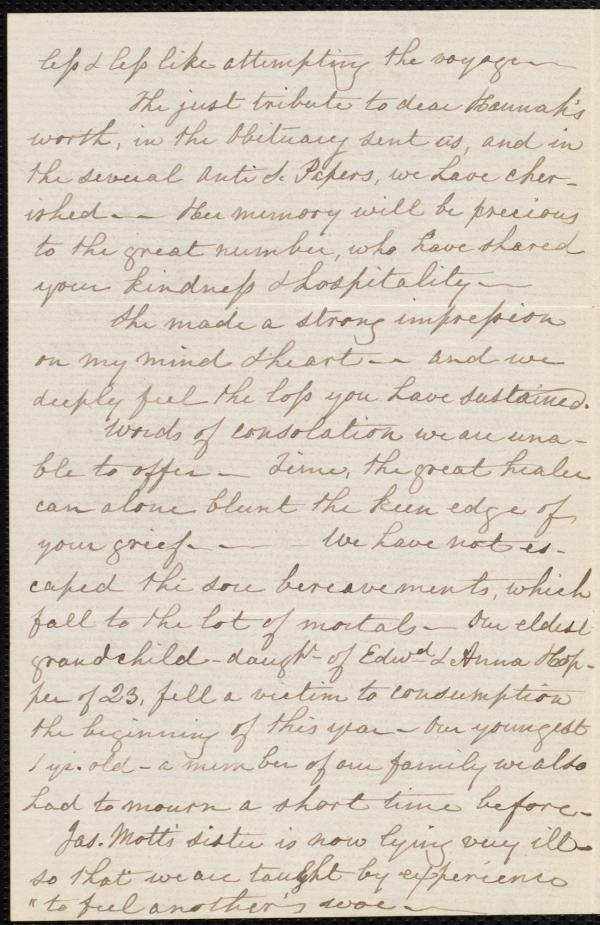 less & less like attempting the voyage —
The just tribute to dear Hannah's
worth, in the Obituary sent us, and in
the several Anti S. Papers, we have cher-
ished — Her memory will be precious
to the great number, who have shared
your kindness & hospitality —
She made a strong impression
on my mind & heart — and we
deeply feel the loss you have sustained.
Words of consolation we are una-
ble to offer — Time, the great healer
can alone blunt the keen edge of
your grief. — — We have not es-
caped the sore bereavements, which
fall to the lot of mortals — Our eldest
grandchild - daughr. of Edwd. & Anna Hop-
per of 23, fell a victim to consumption
the beginning of this year — Our youngest
1 yr. old - a member of our family we also
had to mourn a short time before —
Jas. Mott's sister is now lying very ill —
so that we are taught by experience
"to feel another's woe —